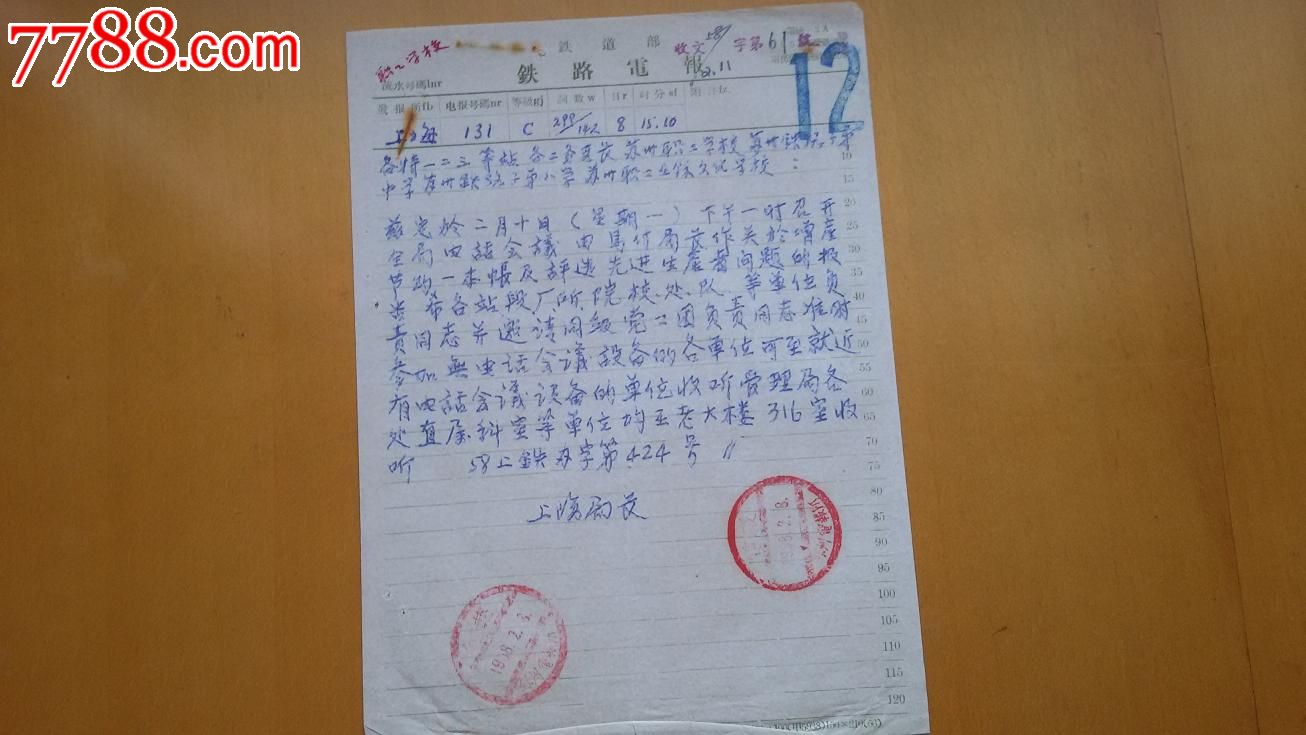 7788.com
中国收藏热线
职工学校
鉄道部
收文 字第61号
鉄路電報
12
2.11
流水号碼lnr
發报所fb 电报号碼nr 等級gj 詞数w 日r 时分sf 附註fz
上海 131 C 299/142 8 15.10
各特一二三等站 各工务段长 苏州职工学校 苏州铁路子弟
中学苏州铁路子弟小学 苏州职工业余文化学校：
兹定於二月十日（星期一）下午一时召开
全局电話会議 由馬付局长作关於增產
节約一本帳及評选先进生產者问题的报
告 希各站段厂所院校处队 等单位负
責同志并邀请同級党工团负責同志准时
参加無电話会議設备的各单位可至就近
有电話会議设备的单位收听管理局各
处直属科室等单位均至老大楼316室收
听 58上鉄办字第424号〃
上海局长
1958.2.8.
1958.2.8.
10
15
20
25
30
35
40
45
50
55
60
65
70
75
80
85
90
95
100
105
110
115
120